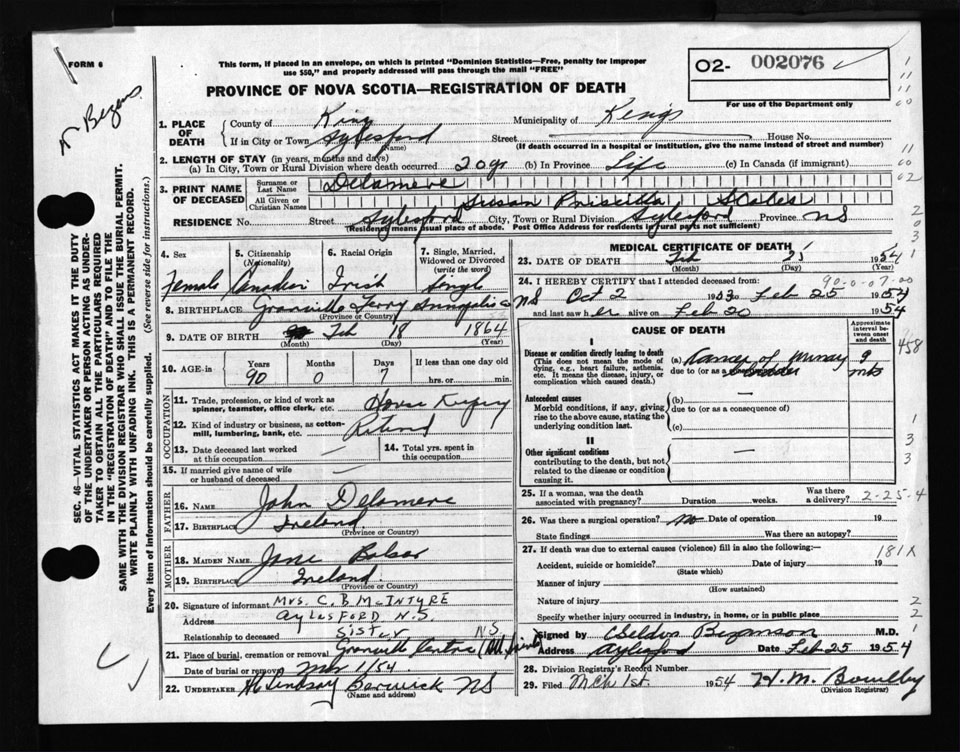 FORM 6
This form, if placed in an envelope, on which is printed "Dominion Statistics—Free, penalty for improper
use $50," and properly addressed will pass through the mail "FREE"
O2- 002076
PROVINCE OF NOVA SCOTIA—REGISTRATION OF DEATH
For use of the Department only
SEC. 46—VITAL STATISTICS ACT MAKES IT THE DUTY
OF THE UNDERTAKER OR PERSON ACTING AS UNDER-
TAKER TO OBTAIN ALL THE PARTICULARS REQUIRED
IN THE "REGISTRATION OF DEATH" AND TO FILE THE
SAME WITH THE DIVISION REGISTRAR WHO SHALL ISSUE THE BURIAL PERMIT.
WRITE PLAINLY WITH UNFADING INK. THIS IS A PERMANENT RECORD.
Every item of Information should be carefully supplied. (See reverse side for instructions.)
1. PLACE OF DEATH
County of Kings Municipality of Kings
If in City or Town Aylesford Street House No.
(Name) (If death occurred in a hospital or institution, give the name instead of street and number)
2. LENGTH OF STAY (in years, months and days)
(a) In City, Town or Rural Division where death occurred 20 yr (b) In Province Life (c) In Canada (if immigrant)
3. PRINT NAME OF DECEASED
Surname or Last Name Delamere
All Given or Christian Names Susan Priscilla
RESIDENCE No. Street Aylesford City, Town or Rural Division Aylesford Province NS
(Residence means usual place of abode. Post Office Address for residents in rural parts not sufficient)
4. Sex 5. Citizenship (Nationality) 6. Racial Origin 7. Single, Married, Widowed or Divorced (write the word)
Female Canadian Irish Single
8. BIRTHPLACE Granville Ferry Annapolis Co NS
(Province or Country)
9. DATE OF BIRTH Feb 18 1864
(Month) (Day) (Year)
10. AGE in Years Months Days If less than one day old
90 0 7 hrs. or min.
OCCUPATION
11. Trade, profession, or kind of work as spinner, teamster, office clerk, etc. House Keeping
12. Kind of industry or business, as cotton-mill, lumbering, bank, etc. Retired
13. Date deceased last worked at this occupation — 14. Total yrs. spent in this occupation —
15. If married give name of wife or husband of deceased —
FATHER
16. NAME John Delamere
17. BIRTHPLACE Ireland
(Province or Country)
MOTHER
18. MAIDEN NAME Jane
19. BIRTHPLACE Ireland.
(Province or Country)
20. Signature of informant MRS. C. B. McINTYRE
Address AYLESFORD N.S.
Relationship to deceased SISTER NS
21. Place of burial, cremation or removal Granville Centre
Date of burial or removal Mch 1/54
22. UNDERTAKER Lindsay Berwick NS
(Name and address)
MEDICAL CERTIFICATE OF DEATH
23. DATE OF DEATH Feb 25 1954
(Month) (Day) (Year)
90-0-07-00
24. I HEREBY CERTIFY that I attended deceased from:
Oct 2 1953 to Feb 25 1954
and last saw her alive on Feb 20 1954
CAUSE OF DEATH
Approximate interval between onset and death
I
Disease or condition directly leading to death (a) Cancer of urinary 9 mts
(This does not mean the mode of dying, e.g., heart failure, asthenia, etc. It means the disease, injury, or complication which caused death.)
due to (or as a consequence of) bladder
Antecedent causes (b) —
Morbid conditions, if any, giving rise to the above cause, stating the underlying condition last.
due to (or as a consequence of)
(c)
II
Other significant conditions —
contributing to the death, but not related to the disease or condition causing it.
25. If a woman, was the death associated with pregnancy? Duration weeks. Was there a delivery? 2-25-4
26. Was there a surgical operation? no Date of operation 19
State findings Was there an autopsy?
27. If death was due to external causes (violence) fill in also the following:—
181X
Accident, suicide or homicide? Date of injury 19
(State which)
Manner of injury
(How sustained)
Nature of injury
Specify whether injury occurred in industry, in home, or in public place
Signed by M.D.
Address Aylesford Date Feb 25 1954
28. Division Registrar's Record Number
29. Filed Mch 1st. 1954 H. M. Bowlby
(Division Registrar)